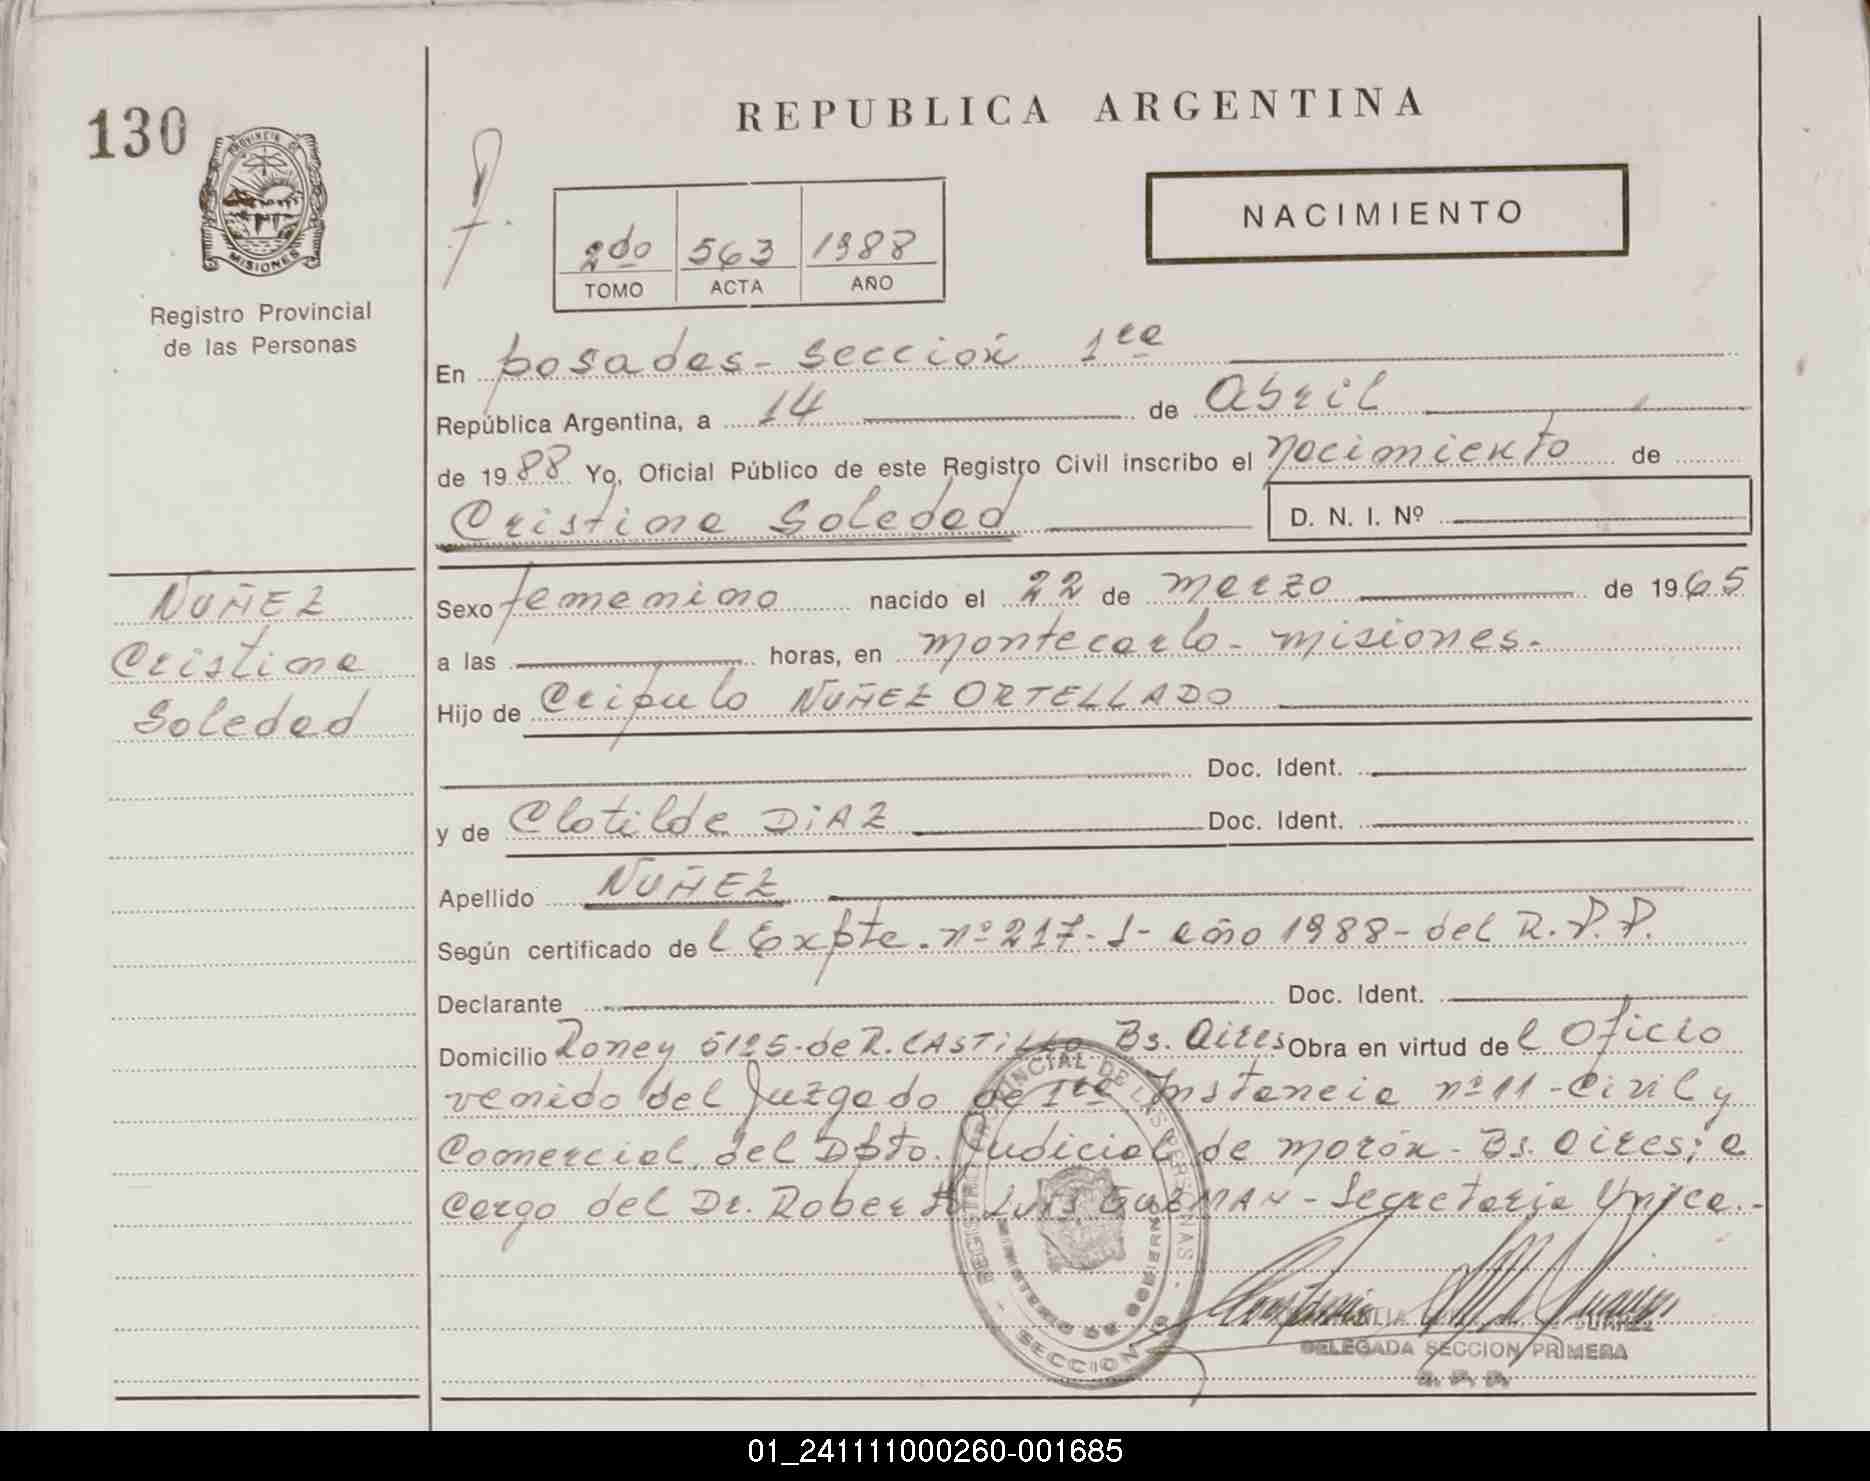 130
PROVINCIA DE
MISIONES
Registro Provincial
de las Personas
REPUBLICA ARGENTINA
NACIMIENTO
2do 563 1988
TOMO ACTA AÑO
En Posadas - Sección 1ra
República Argentina, a 14 de Abril
de 1988 Yo, Oficial Público de este Registro Civil inscribo el Nacimiento de
Cristina Soledad D. N. I. Nº
NUÑEZ
Cristina
Soledad
Sexo femenino nacido el 22 de marzo de 1965
a las horas, en montecarlo - misiones.
Hijo de Cripulo NUÑEZ ORTELLADO
Doc. Ident.
y de Clotilde DiAZ Doc. Ident.
Apellido NUÑEZ
Según certificado del Expte. nº 217- - año 1988 - del R.P.P.
Declarante Doc. Ident.
Domicilio 5125 - de R. CASTiLLO Bs. Aires Obra en virtud del Oficio
venido del Juzgado de 1ra Instancia nº 11 - Civil y
Comercial, del Dpto. Judicial de morón - Bs. Aires; a
cargo del Dr. Roberto Luis GUZMAN - Secretaria Unica. -
REGISTRO PROVINCIAL DE LAS PERSONAS
MINISTERIO DE GOBIERNO
SECCION
DELEGADA SECCION PRIMERA
R. P. P.
01_241111000260-001685